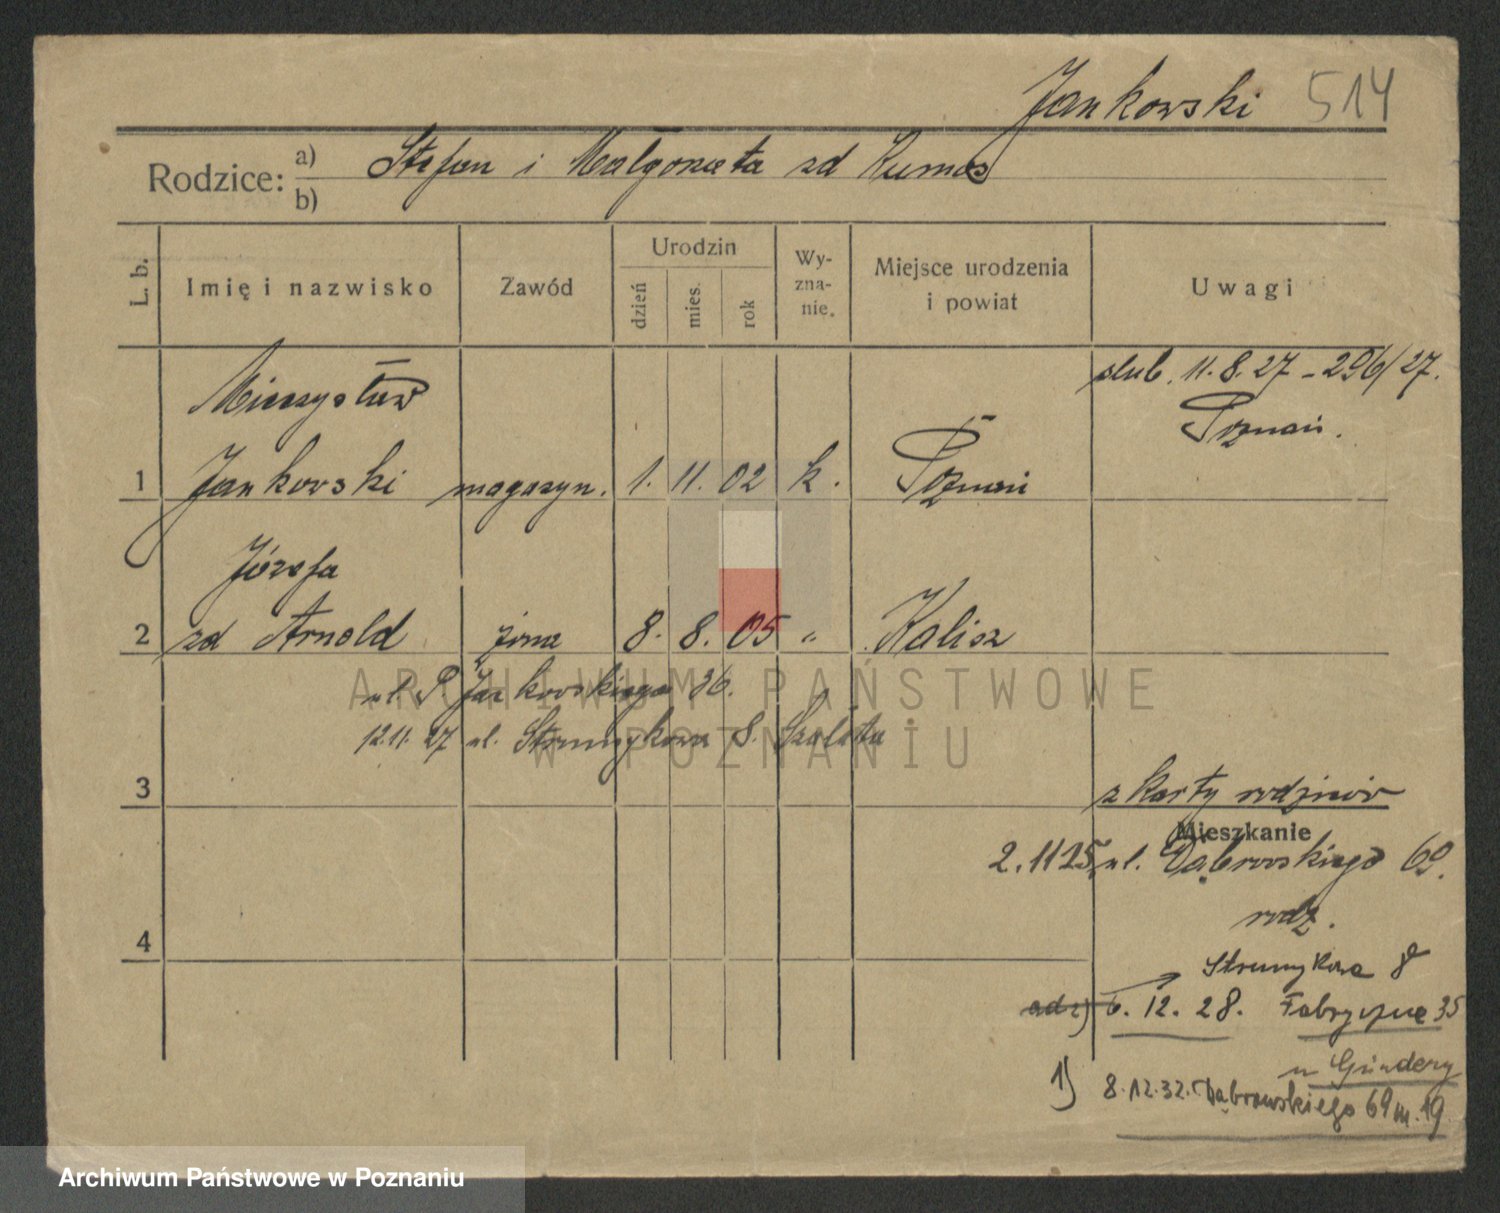 Jankowski 514
Rodzice: a) Stefan i Małgorzata zd Kumos
b)
L. b. Imię i nazwisko Zawód Urodzin dzień mies. rok Wy-zna-nie. Miejsce urodzenia i powiat Uwagi
ślub. 11.8.27 - 296/27.
Poznań.
Mieczysław
1 Jankowski magazyn. 1. 11. 02 k. Poznań
Józefa
2 zd Arnold żona 8. 8. 05 " Kalisz
ul. P. Jackowskiego 36.
12.11.27 ul. Strumykowa 8.
3
z karty rodziców
Mieszkanie
2.11 25 ul. Dąbrowskiego 69.
rodz.
4
Strumykowa 8
6. 12. 28. Fabryczne 35
u Gindery
1) 8.12.32. Dąbrowskiego 69 m. 19
ARCHIWUM PAŃSTWOWE
W POZNANIU
Archiwum Państwowe w Poznaniu